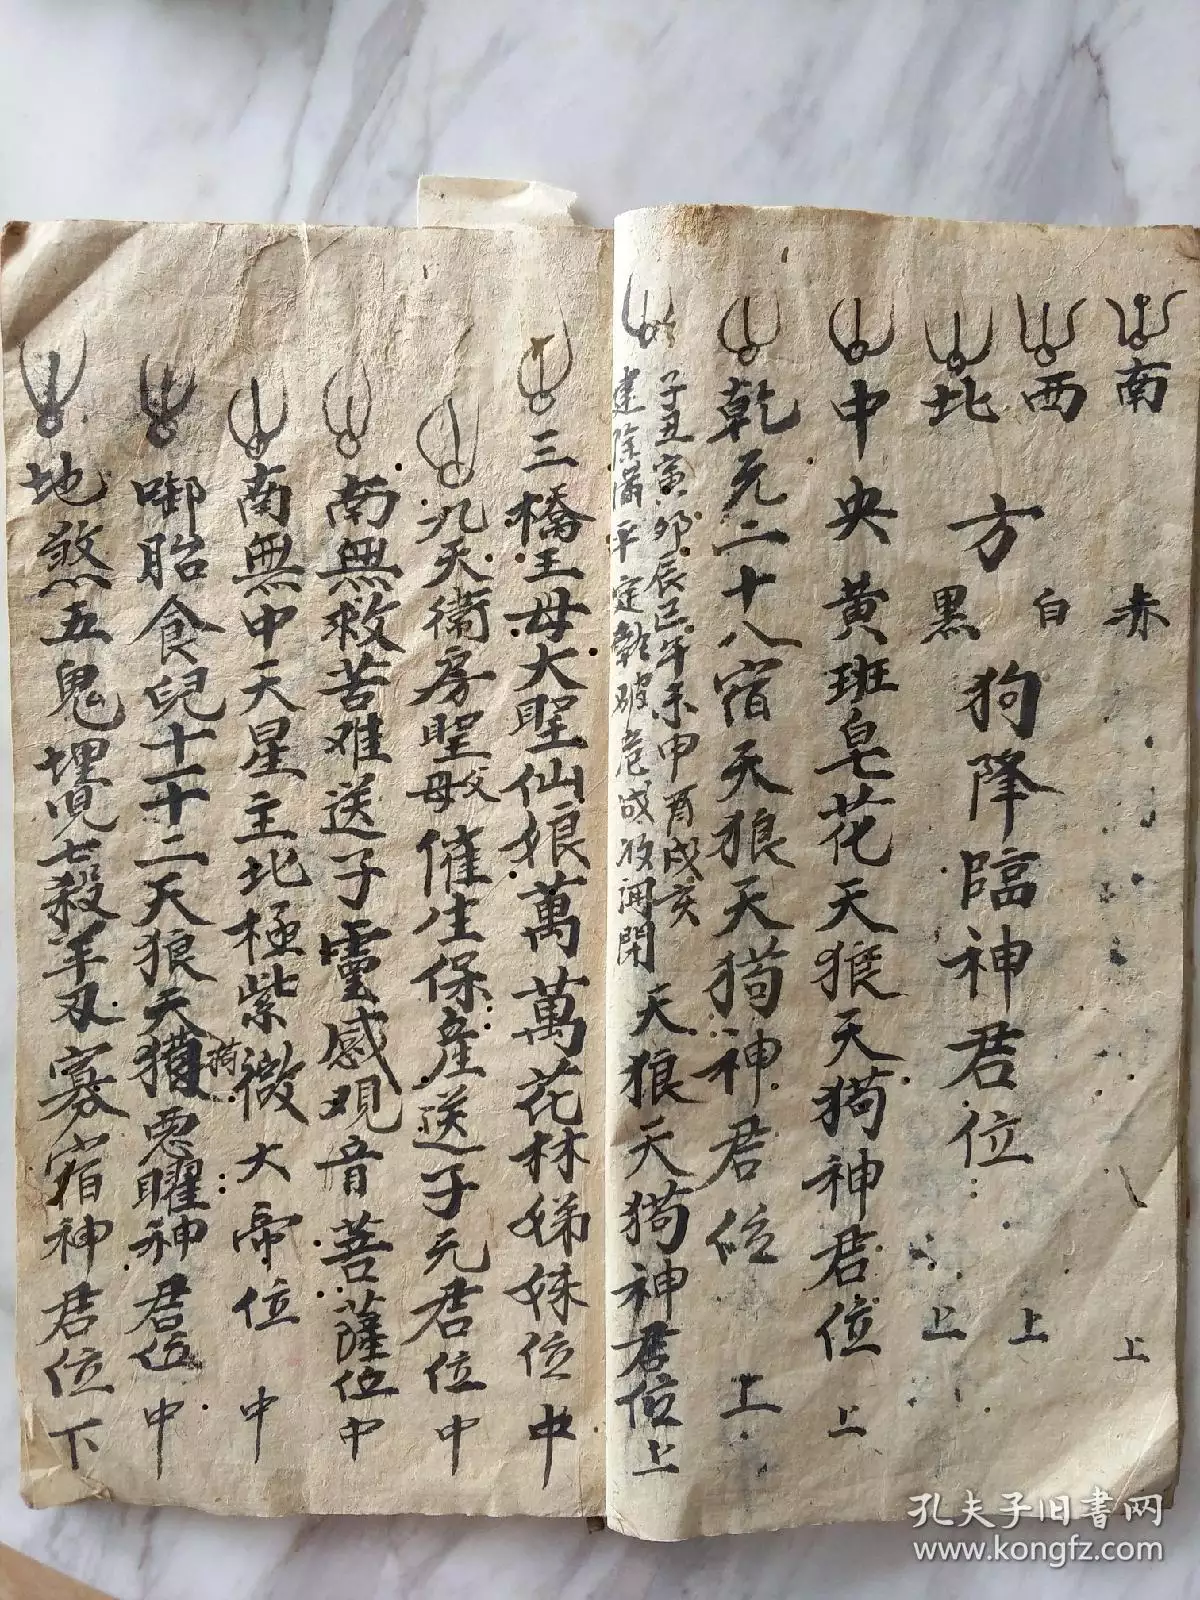 南 赤 上
西 白 上
北 黑 上
方 狗降臨神君位
中央黃班皂花天狼天狗神君位 上
乾元二十八宿天狼天狗神君位 上
子丑寅卯辰巳午未申酉戌亥
建除滿平定執破危成收開閉
天狼天狗神君位上
三橋王母大聖仙娘萬萬花林娣妹位中
九天衛房聖父母催生保產送子元君位中
南無救苦难送子靈感观音菩薩位中
南無中天星主北極紫微大帝位 中
啣胎食兒十一十二天狼天狗惡曜神君位中
狗
地煞五鬼埋兒七殺羊刃寡宿神君位下
孔夫子旧书网
www.kongfz.com